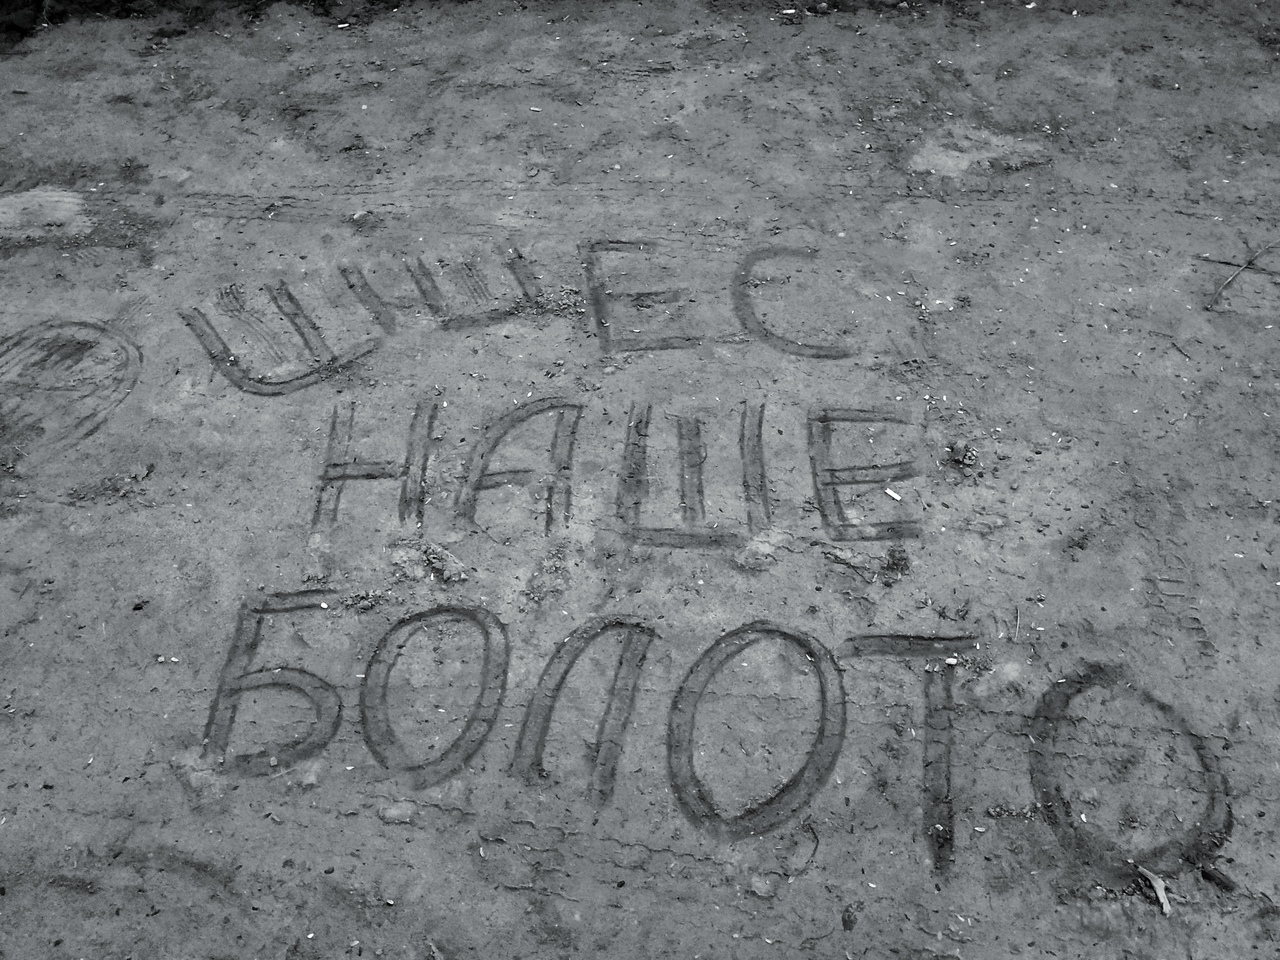 ШИЕС
НАШЕ
БОЛОТО